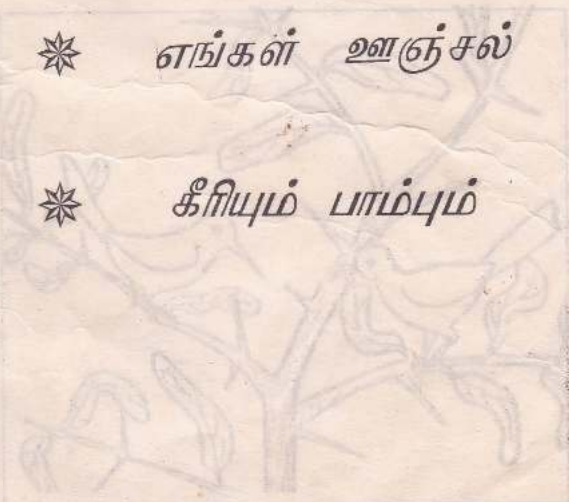 எங்கள் ஊஞ்சல்
கீரியும் பாம்பும்